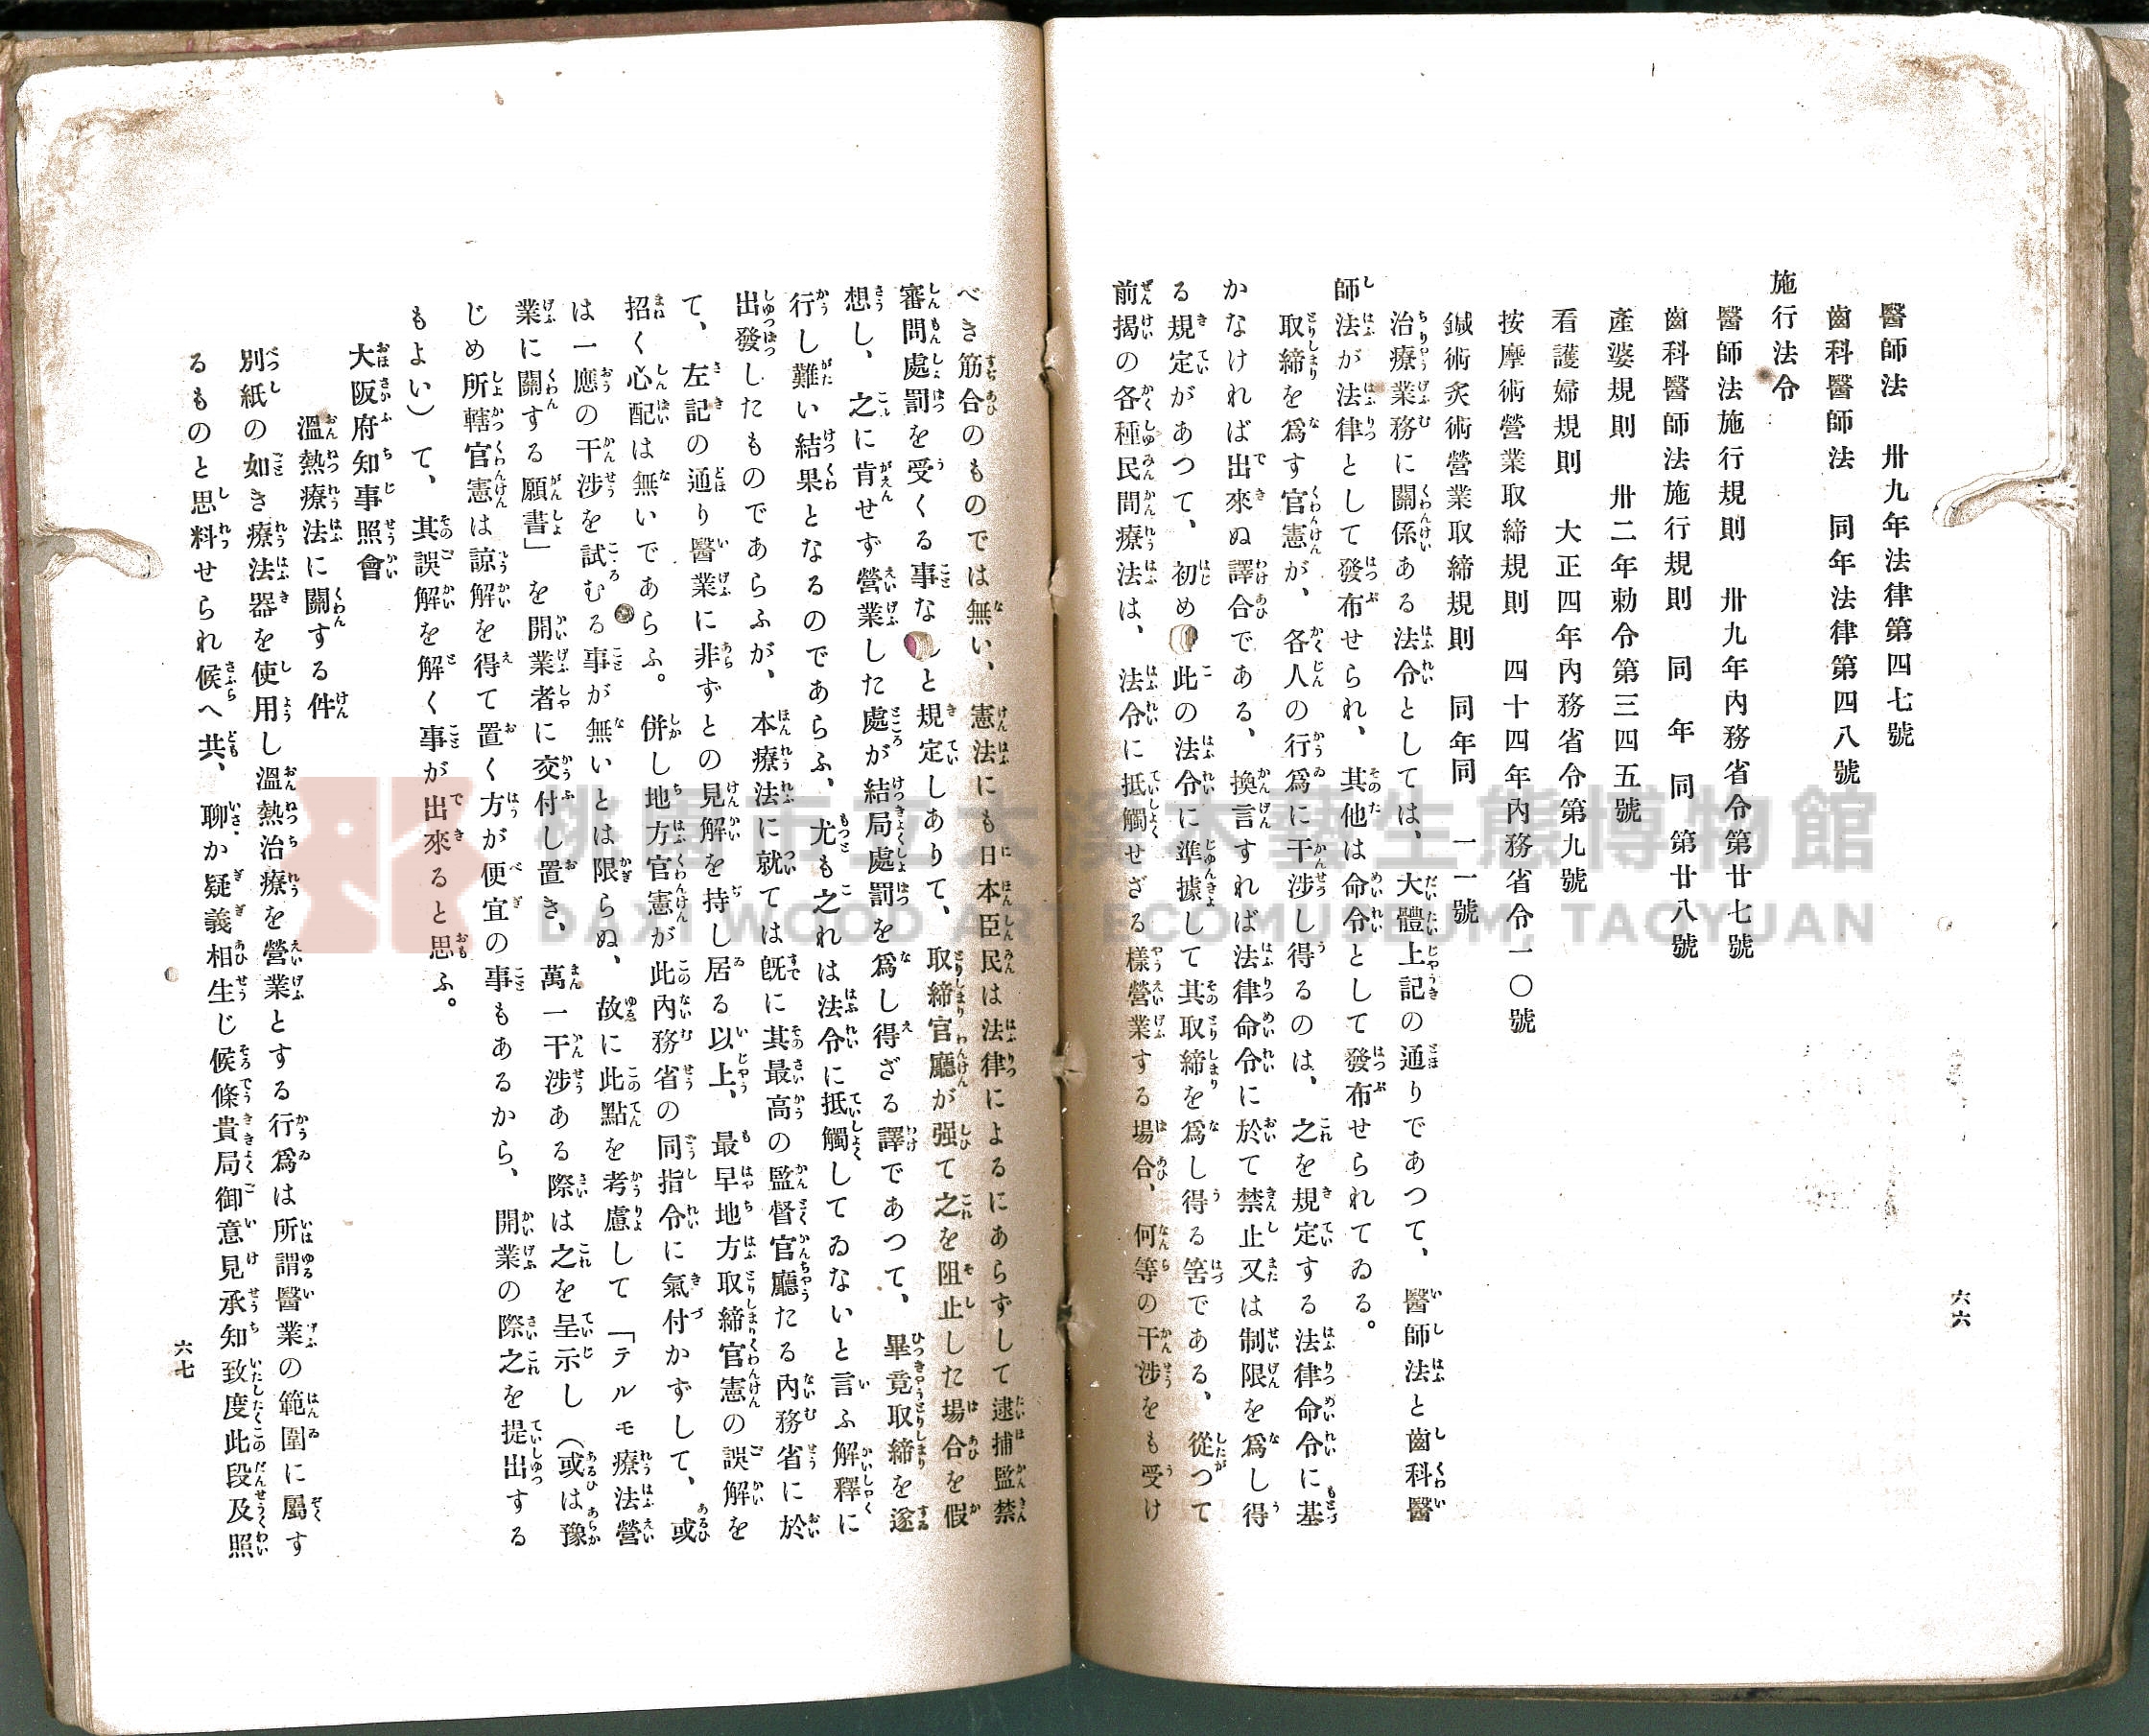 醫師法　卅九年法律第四七號
齒科醫師法　同年法律第四八號
施行法令
醫師法施行規則　卅九年內務省令第廿七號
齒科醫師法施行規則　同　年　同　第廿八號
產婆規則　卅二年勅令第三四五號
看護婦規則　大正四年內務省令第九號
按摩術營業取締規則　四十四年內務省令一〇號
鍼術灸術營業取締規則　同年同　一一號
治療業務に關係ある法令としては、大體上記の通りであつて、醫師法と齒科醫
師法が法律として發布せられ、其他は命令として發布せられてゐる。
取締を爲す官憲が、各人の行爲に干涉し得るのは、之を規定する法律命令に基
かなければ出來ぬ譯合である、換言すれば法律命令に於て禁止又は制限を爲し得
る規定があつて、初め此の法令に準據して其取締を爲し得る筈である、從つて
前揭の各種民間療法は、法令に抵觸せざる樣營業する場合、何等の干涉をも受け
六六
べき筋合のものでは無い、憲法にも日本臣民は法律によるにあらずして逮捕監禁
審問處罰を受くる事なしと規定しありて、取締官廳が强て之を阻止した場合を假
想し、之に肯せず營業した處が結局處罰を爲し得ざる譯であつて、畢竟取締を遂
行し難い結果となるのであらふ、尤も之れは法令に抵觸してゐないと言ふ解釋に
出發したものであらふが、本療法に就ては既に其最高の監督官廳たる內務省に於
て、左記の通り醫業に非ずとの見解を持し居る以上、最早地方取締官憲の誤解を
招く心配は無いであらふ。併し地方官憲が此內務省の同指令に氣付かずして、或
は一應の干涉を試むる事が無いとは限らぬ、故に此點を考慮して「テルモ療法營
業に關する願書」を開業者に交付し置き、萬一干涉ある際は之を呈示し（或は豫
じめ所轄官憲は諒解を得て置く方が便宜の事もあるから、開業の際之を提出する
もよい）て、其誤解を解く事が出來ると思ふ。
大阪府知事照會
溫熱療法に關する件
別紙の如き療法器を使用し溫熱治療を營業とする行爲は所謂醫業の範圍に屬す
るものと思料せられ候へ共、聊か疑義相生じ候條貴局御意見承知致度此段及照
六七
桃園市立大溪木藝生態博物館
DAXI WOOD ART ECOMUSEUM, TAOYUAN